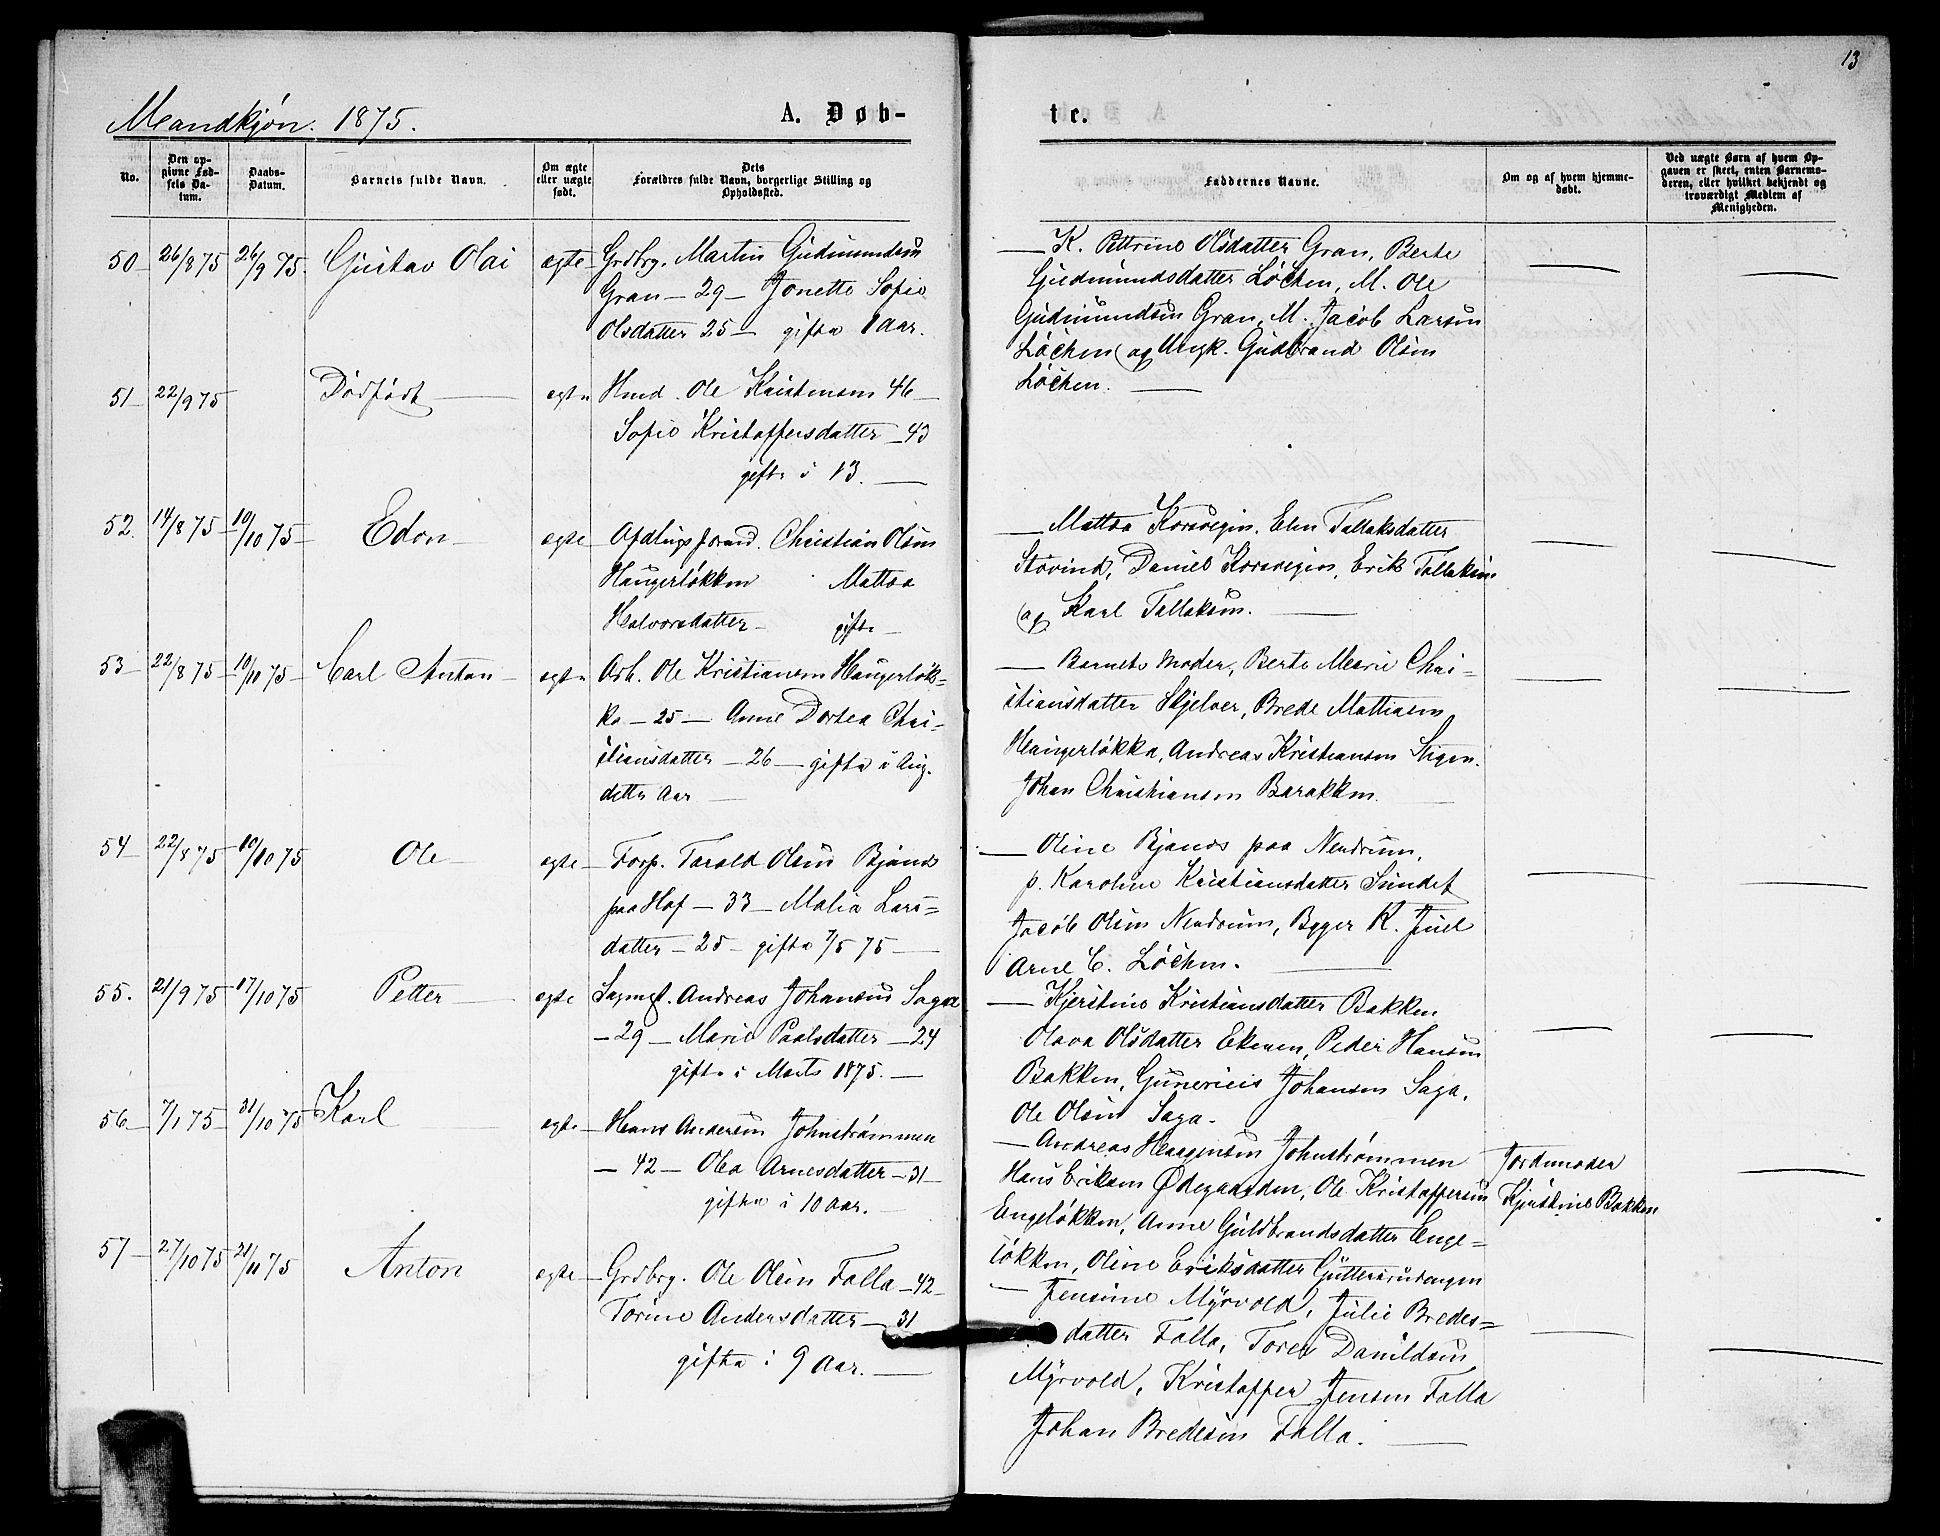 13
Mandkjøn. 1875.
A. Døb-
te.
No.
Den op-
givne Fød-
sels Da-
tum.
Daabs-
Datum.
Barnets fulde Navn.
Om ægte
eller uægte
født.
Dets
Forældres fulde Navn, borgerlige Stilling og
Opholdssted.
Faddernes Navne.
Om og af hvem hjemme-
døbt.
Ved uægte Børn af hvem Op-
gaven er skeet, enten Barnemo-
deren, eller hvilket bekjendt og
troværdigt Medlem af
Menigheden.
50 26/8 75 26/9 75. Gustav Olai ægte Grdbrg. Martin Gudmundsen
Gran - 29 - Jonette Sofie
Olsdatter 25 - gifta 1 aar.
K. Pettrine Olsdatter Gran, Berte
Gudmundsdatter Løchen, M. Ole
Gudmundsen Gran, M. Jacob Larsen
Løchen og Ungk. Gudbrand Olsen
Løchen.
51 22/9 75 Dødfødt ægte Hmd. Ole Kristensen 46
Sofie Kristoffersdatter - 43
gifte i 13.
52. 14/8 75 10/10 75 Edon ægte Christian Olsen
Haugerløkken Mattea
Halvorsdatter - gifte
Mattea Korsvegen. Elen Tallaksdatter
Støvind, Daniel Korsvegen, Erik Tallaksen
og Karl Tallaksen.
53 22/8 75 10/10 75 Carl Anton ægte Arb. Ole Kristiansen Haugerløk-
ka - 25 - Anne Dortea Chri-
stiansdatter - 26 - gifta i Aug.
dette Aar
Barnets Moder, Berte Marie Chri-
stiansdatter Skjelver, Brede Mattiasen
Haugerløkka, Andreas Kristiansen Stigen.
Johan Christiansen Barakken.
54 22/8 75 10/10 75 Ole ægte Forp. Tarald Olsen Bjånes
paa Hof - 33 - Malia Lars-
datter - 25 - gifta 7/5 75
Oline Bjånes paa Nendrum,
p. Karoline Kristiansdatter Sundet
Jacob Olsen Nendrum, Bgger K. Juel
Arne C. Løchen.
55. 21/9 75 17/10 75 Petter ægte Sagmst. Andreas Johansen Saga
- 29 - Marie Paalsdatter - 24
gifta i Marts 1875.
Kjerstine Kristiansdatter Bakken
Olava Olsdatter Ekmen, Peder Hansen
Bakken, Gunerius Johansen Saga,
Ole Olsen Saga.
56 7/1 75 31/10 75 Karl ægte Hans Andersen Johnstrømmen
- 42 - Olea Arnesdatter - 31
gifta i 10 aar.
Andreas Haagensen Johnstrømmen
Hans Eriksen Ødegaarden, Ole Kristoffersen
Engeløkken, Anne Guldbrandsdatter Enge-
løkken, Oline Eriksdatter Guttersrudengen
Jordemoder
Kjerstine Bakken
57 27/10 75 21/11 75 Anton ægte Grdbrg. Ole Olsen Falla - 42
Torine Andersdatter - 31
gifta i 9 aar.
Jensine Myrvold, Julie Bredes-
datter Falla, Torer Danildsen
Myrvold, Kristoffer Jensen Falla
Johan Bredesen Falla.